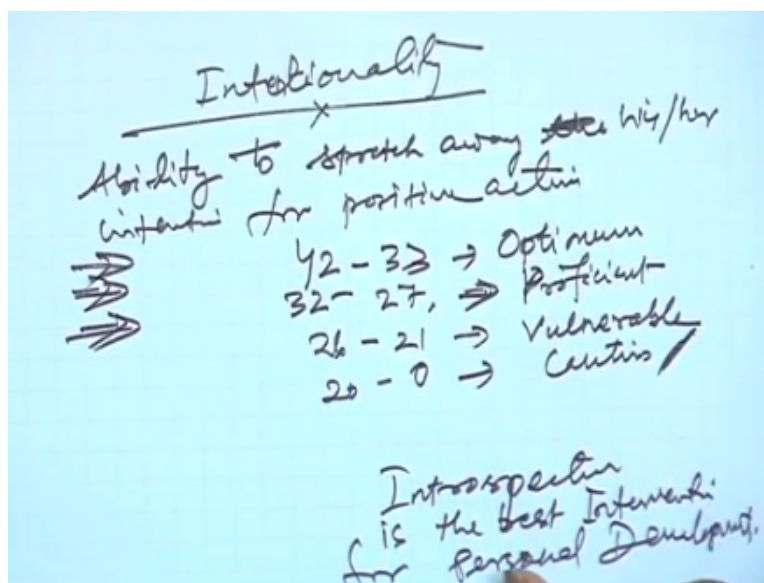 Intentionality
Ability to stretch away his/her
intention for positive action
42 - 33 → Optimum
32 - 27, → Proficient
26 - 21 → Vulnerable
20 - 0 → Cautious
Introspection
is the best Intervention
for Personal Development.